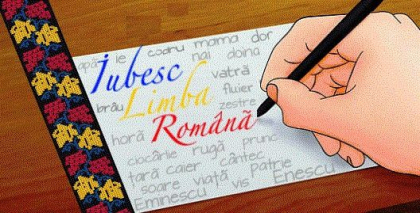 apă ie codru mama dor
nai doina
Iubesc
vatră
brâu Limba fluier
zestre
Română
horă
ciocârlie rugă prunc
țară caier cântec
soare viață patrie
Eminescu vis Enescu